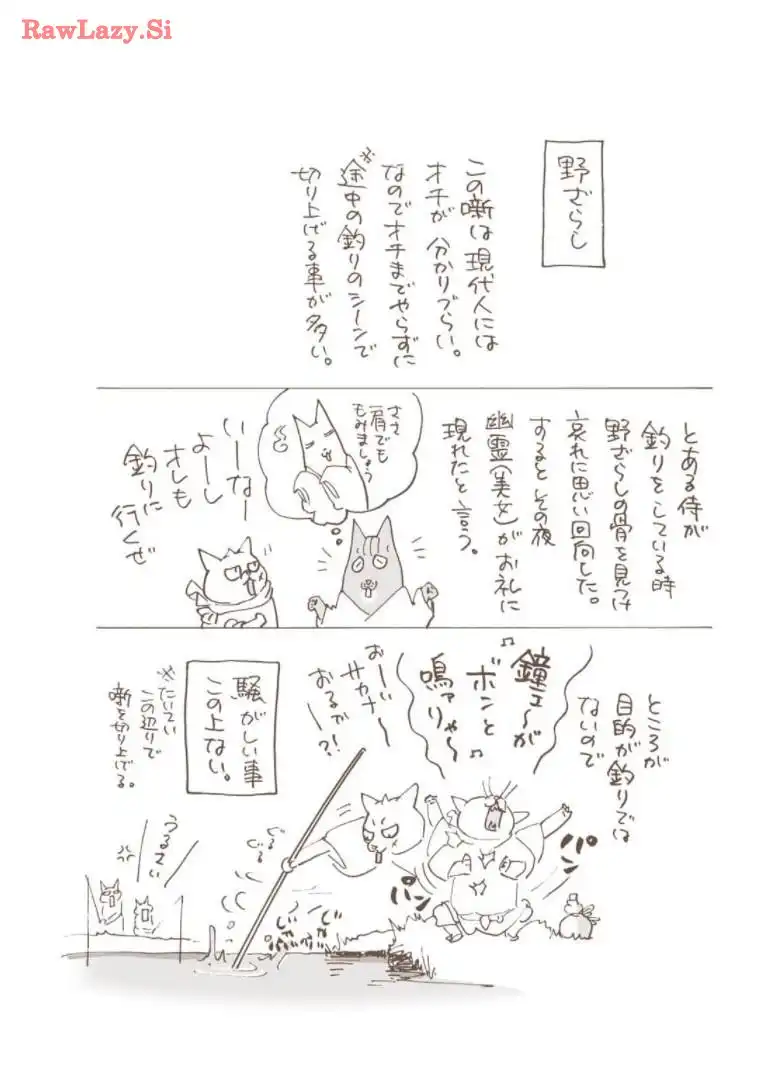 RawLazy.Si
野ざらし
この噺は現代人には
オチが分かりづらい。
なのでオチまでやらずに
※途中の釣りのシーンで
切り上げる事が多い。
とある侍が
釣りをしている時
野ざらしの骨を見つけ
哀れに思い回向した。
するとその夜
幽霊(美女)がお礼に
現れたと言う。
ささ
肩でも
もみましょう
いーなー
よーし
オレも
釣りに
行くぜ
ところが
目的が釣りでは
ないので
鐘ェ〜が
ボンと
鳴ァりゃ〜
♪
♪
おーい
サカナー
おるでー?!
騒がしい事
この上ない。
※たいてい
この辺りで
噺を切り上げる。
うるさい
パン
パン